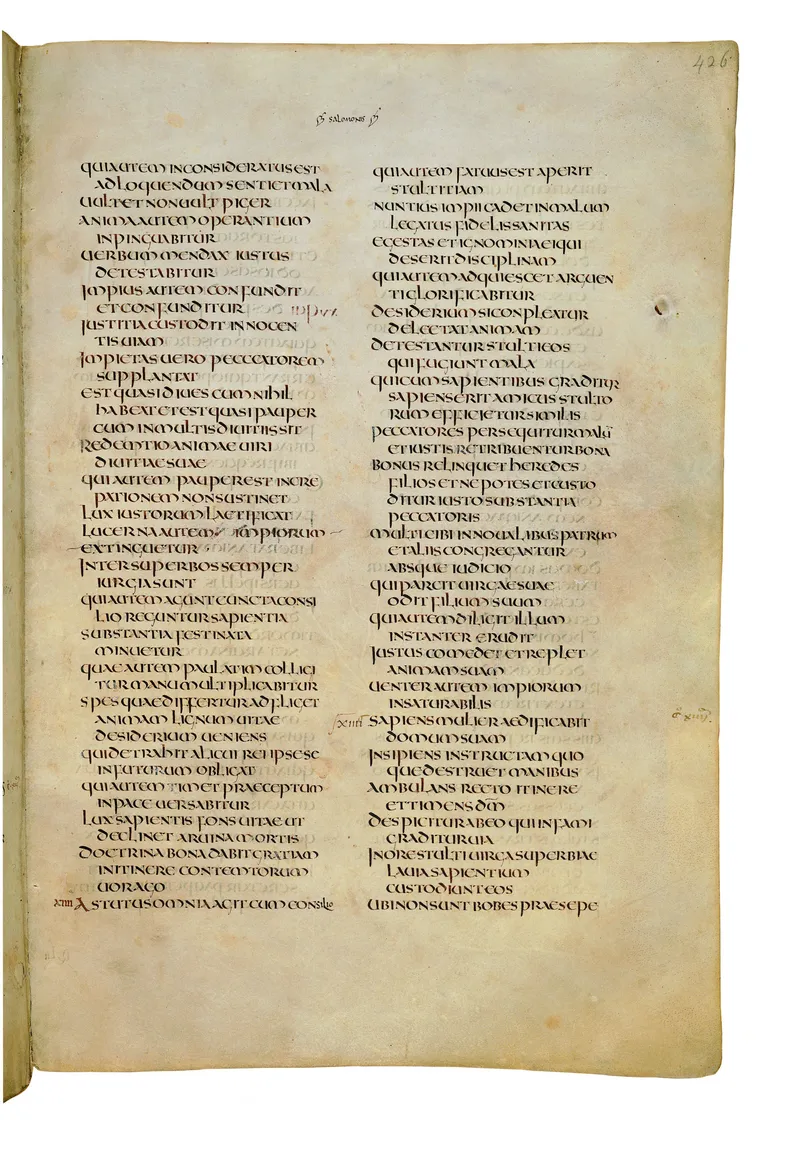 426
salomonis
qui autem inconsideratus est
ad loquendum sentiet mala
uult et non uult piger
anima autem operantium
inpinguabitur
uerbum mendax iustus
detestabitur
impius autem confundit
et confunditur
iustitia custodit innocen
tis uiam
impietas uero peccatorem
supplantat
est quasi diues cum nihil
habeat et est quasi pauper
cum in multis diuitiis sit
redemtio animae uiri
diuitiae suae
qui autem pauper est incre
pationem non sustinet
lux iustorum laetificat
lucerna autem impiorum
extinguetur
inter superbos semper
iurgia sunt
qui autem agunt cuncta consi
lio reguntur sapientia
substantia festinata
minuetur
quae autem paulatim colligi
tur manu multiplicabitur
spes quae differtur adfliget
animam lignum uitae
desiderium ueniens
qui detrahit alicui rei ipse se
in futurum obligat
qui autem timet praeceptum
in pace uersabitur
lux sapientis fons uitae ut
declinet a ruina mortis
doctrina bona dabit gratiam
in itinere contemtorum
uorago
xiii astutus omnia agit cum consilio
qui autem fatuus est aperit
stultitiam
nuntius impii cadet in malum
legatus fidelis sanitas
egestas et ignominia ei qui
deserit disciplinam
qui autem adquiescet arguen
ti glorificabitur
desiderium si conpleatur
delectat animam
detestantur stulti eos
qui fugiunt mala
qui cum sapientibus graditur
sapiens erit amicus stulto
rum efficietur similis
peccatores persequitur malū
et iustis retribuentur bona
bonus relinquet heredes
filios et nepotes et custo
ditur iusto substantia
peccatoris
multi cibi in noualibus patrum
et aliis congregantur
absque iudicio
qui parcit uirgae suae
odit filium suum
qui autem diligit illum
instanter erudit
iustus comedet et replet
animam suam
uenter autem impiorum
insaturabilis
xiiii sapiens mulier aedificabit
domum suam
insipiens instructam quo
que destruet manibus
ambulans recto itinere
et timens dm̄
despicitur ab eo qui infami
graditur uia
in ore stulti uirga superbiae
labia sapientium
custodiunt eos
ubi non sunt bobes praesepe